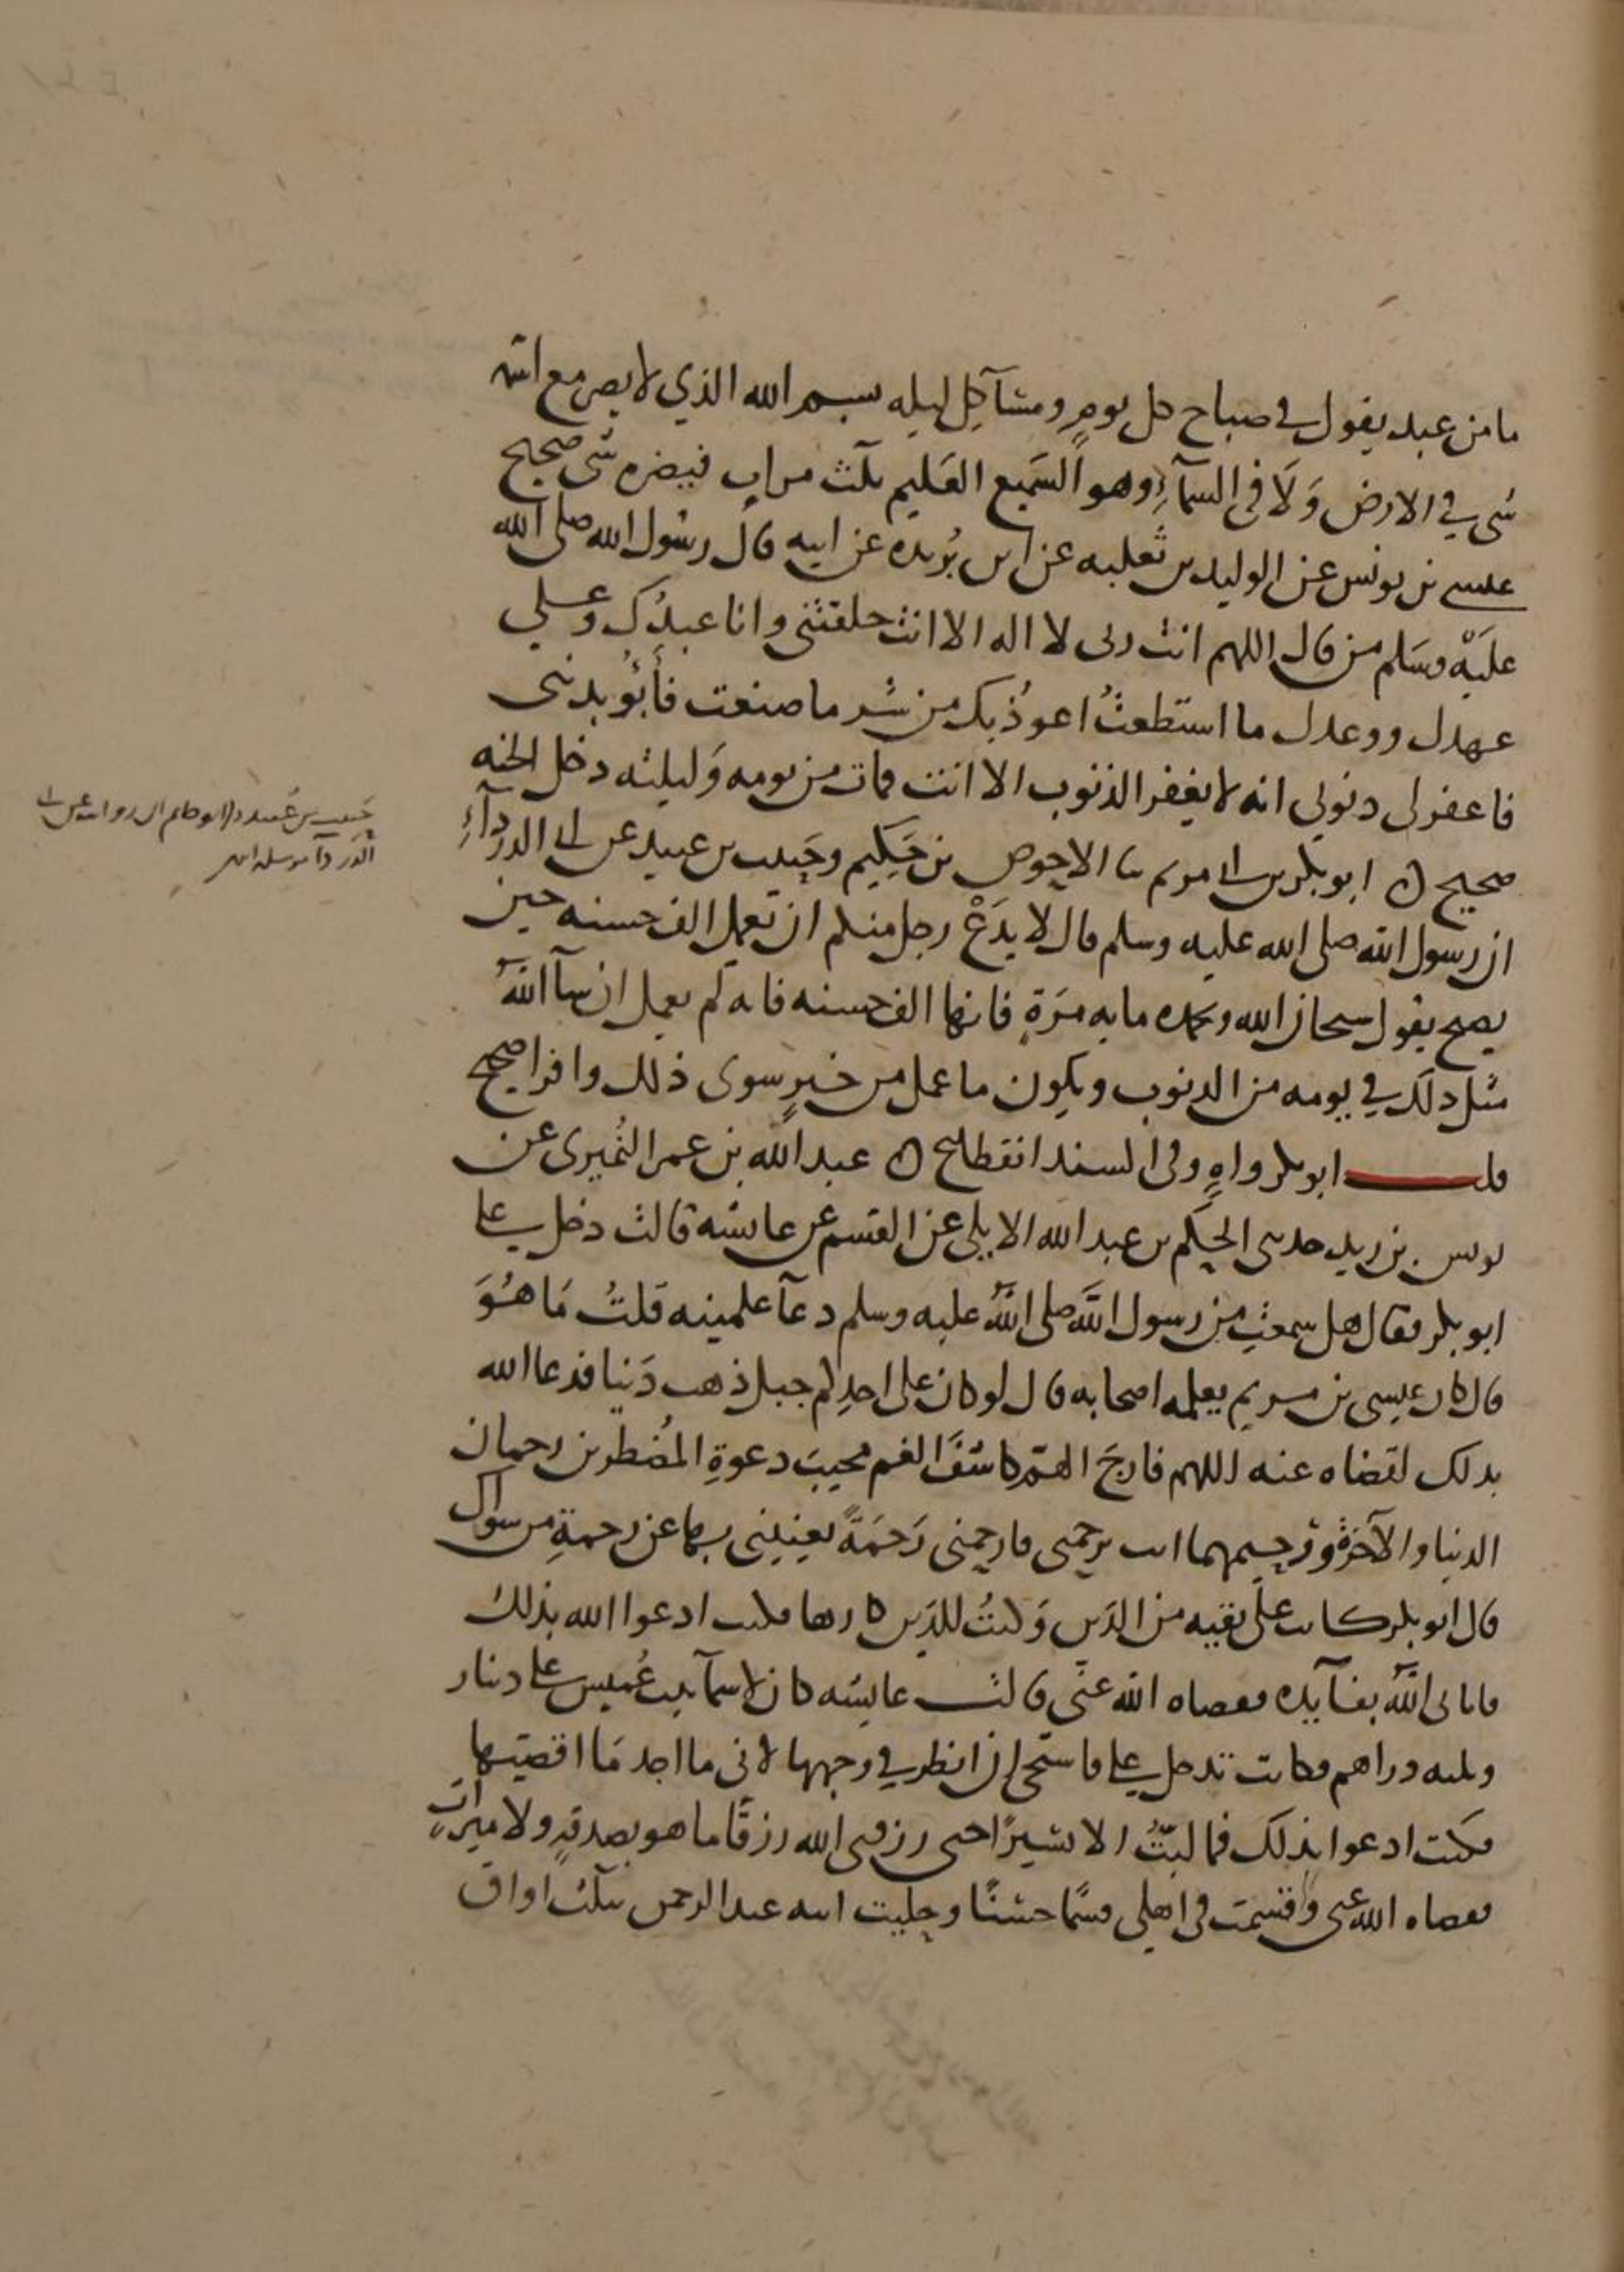 ما من عبد يقول في صباح كل يومٍ ومسآ كل ليله بسم الله الذي لا يضر مع اسمه
شي في الارض وَلَا في السمآءِ وهو السَميع العَليم ثلث مراتٍ فيضره شي صحيح
عيسى بن يونس عن الوليد بن ثعلبه عن ابن بُريده عن ابيه قال رسُول الله صلى الله
عليْه وسَلم من قال اللهم انت ربي لا اله الا انت خلقتني وانا عبدُك وعلي
عهدك ووعدك ما استطعتُ اعوذُ بك من شر ما صنعت فأبُوُ بذنبي
فاغفر لي ذنوبي انه لا يغفر الذنوب الا انت فمات من يومه وَليلته دخل الجنه
صحيح ه ابو بكر بن ابي مريم نا الاحوص بن حَكِيم وحَبيب بن عبيد عن ابي الدردآءِ
ان رسول الله صلى الله عليه وسلم قال لا يدَعْ رجل منكم ان يعمل الف حسنه حين
يصبح يقول سبحان الله وبحمده مايه مَرّةٍ فانها الف حسنه فانه لم يعمل ان شآ اللهُ
مثل ذلك في يومه من الذنوب ويكون ما عمل من خيرٍ سوى ذلك وافرا صحيح
قلت ابو بكر واهٍ وفي السند انقطاع ه عبد الله بن عمر النُميري عن
يونس بن يزيد حدثني الحَكم بن عبد الله الايلي عن القسم عن عايشه قالت دخل علي
ابو بكر فقال هل سمعتِ من رسول اللهِ صلى اللهُ عليه وسلم دعآ علمنيه قلتُ مَا هُوَ
قال كان عيسى بن مريم يعلمه اصحابه قال لو كان على احدِكم جبل ذهب دَينا فدعا الله
بذلك لقضاه عنه اللهم فارجَ الهمّ كاشفَ الغم مجيبَ دعوةِ المُضطرين رحمان
الدنيا والآخرةِ ورحيمهما انت ترحمني فارحمني رَحمَةً تغنيني بها عن رحمةِ من سواك
قال ابو بكر كانت عليّ بقيه من الدَين وَكنتُ للدَين كارها فكنت ادعوا الله بذلك
فاتاني اللهُ بفآيده فقضاه الله عنّي قالت عايشه كان لاسمآ بنت عُميس علي دينار
وثلثه دراهم فكانت تدخل علي فاستحي ان انظر في وجهها لاني ما اجد مَا اقضيها
فكنت ادعوا بذلك فما لبثتُ الا يسيرًا حتى رزقني الله رزقًا ما هو بصدقهٍ ولا ميراثٍ
فقضاه الله عني وقسمت في اهلي قسمًا حسنًا وحليت ابنه عبد الرحمن بثلث اواق
حَبيب بن عُبيد ابو حاتم ان روايته عن ابي
الدردآ مرسله